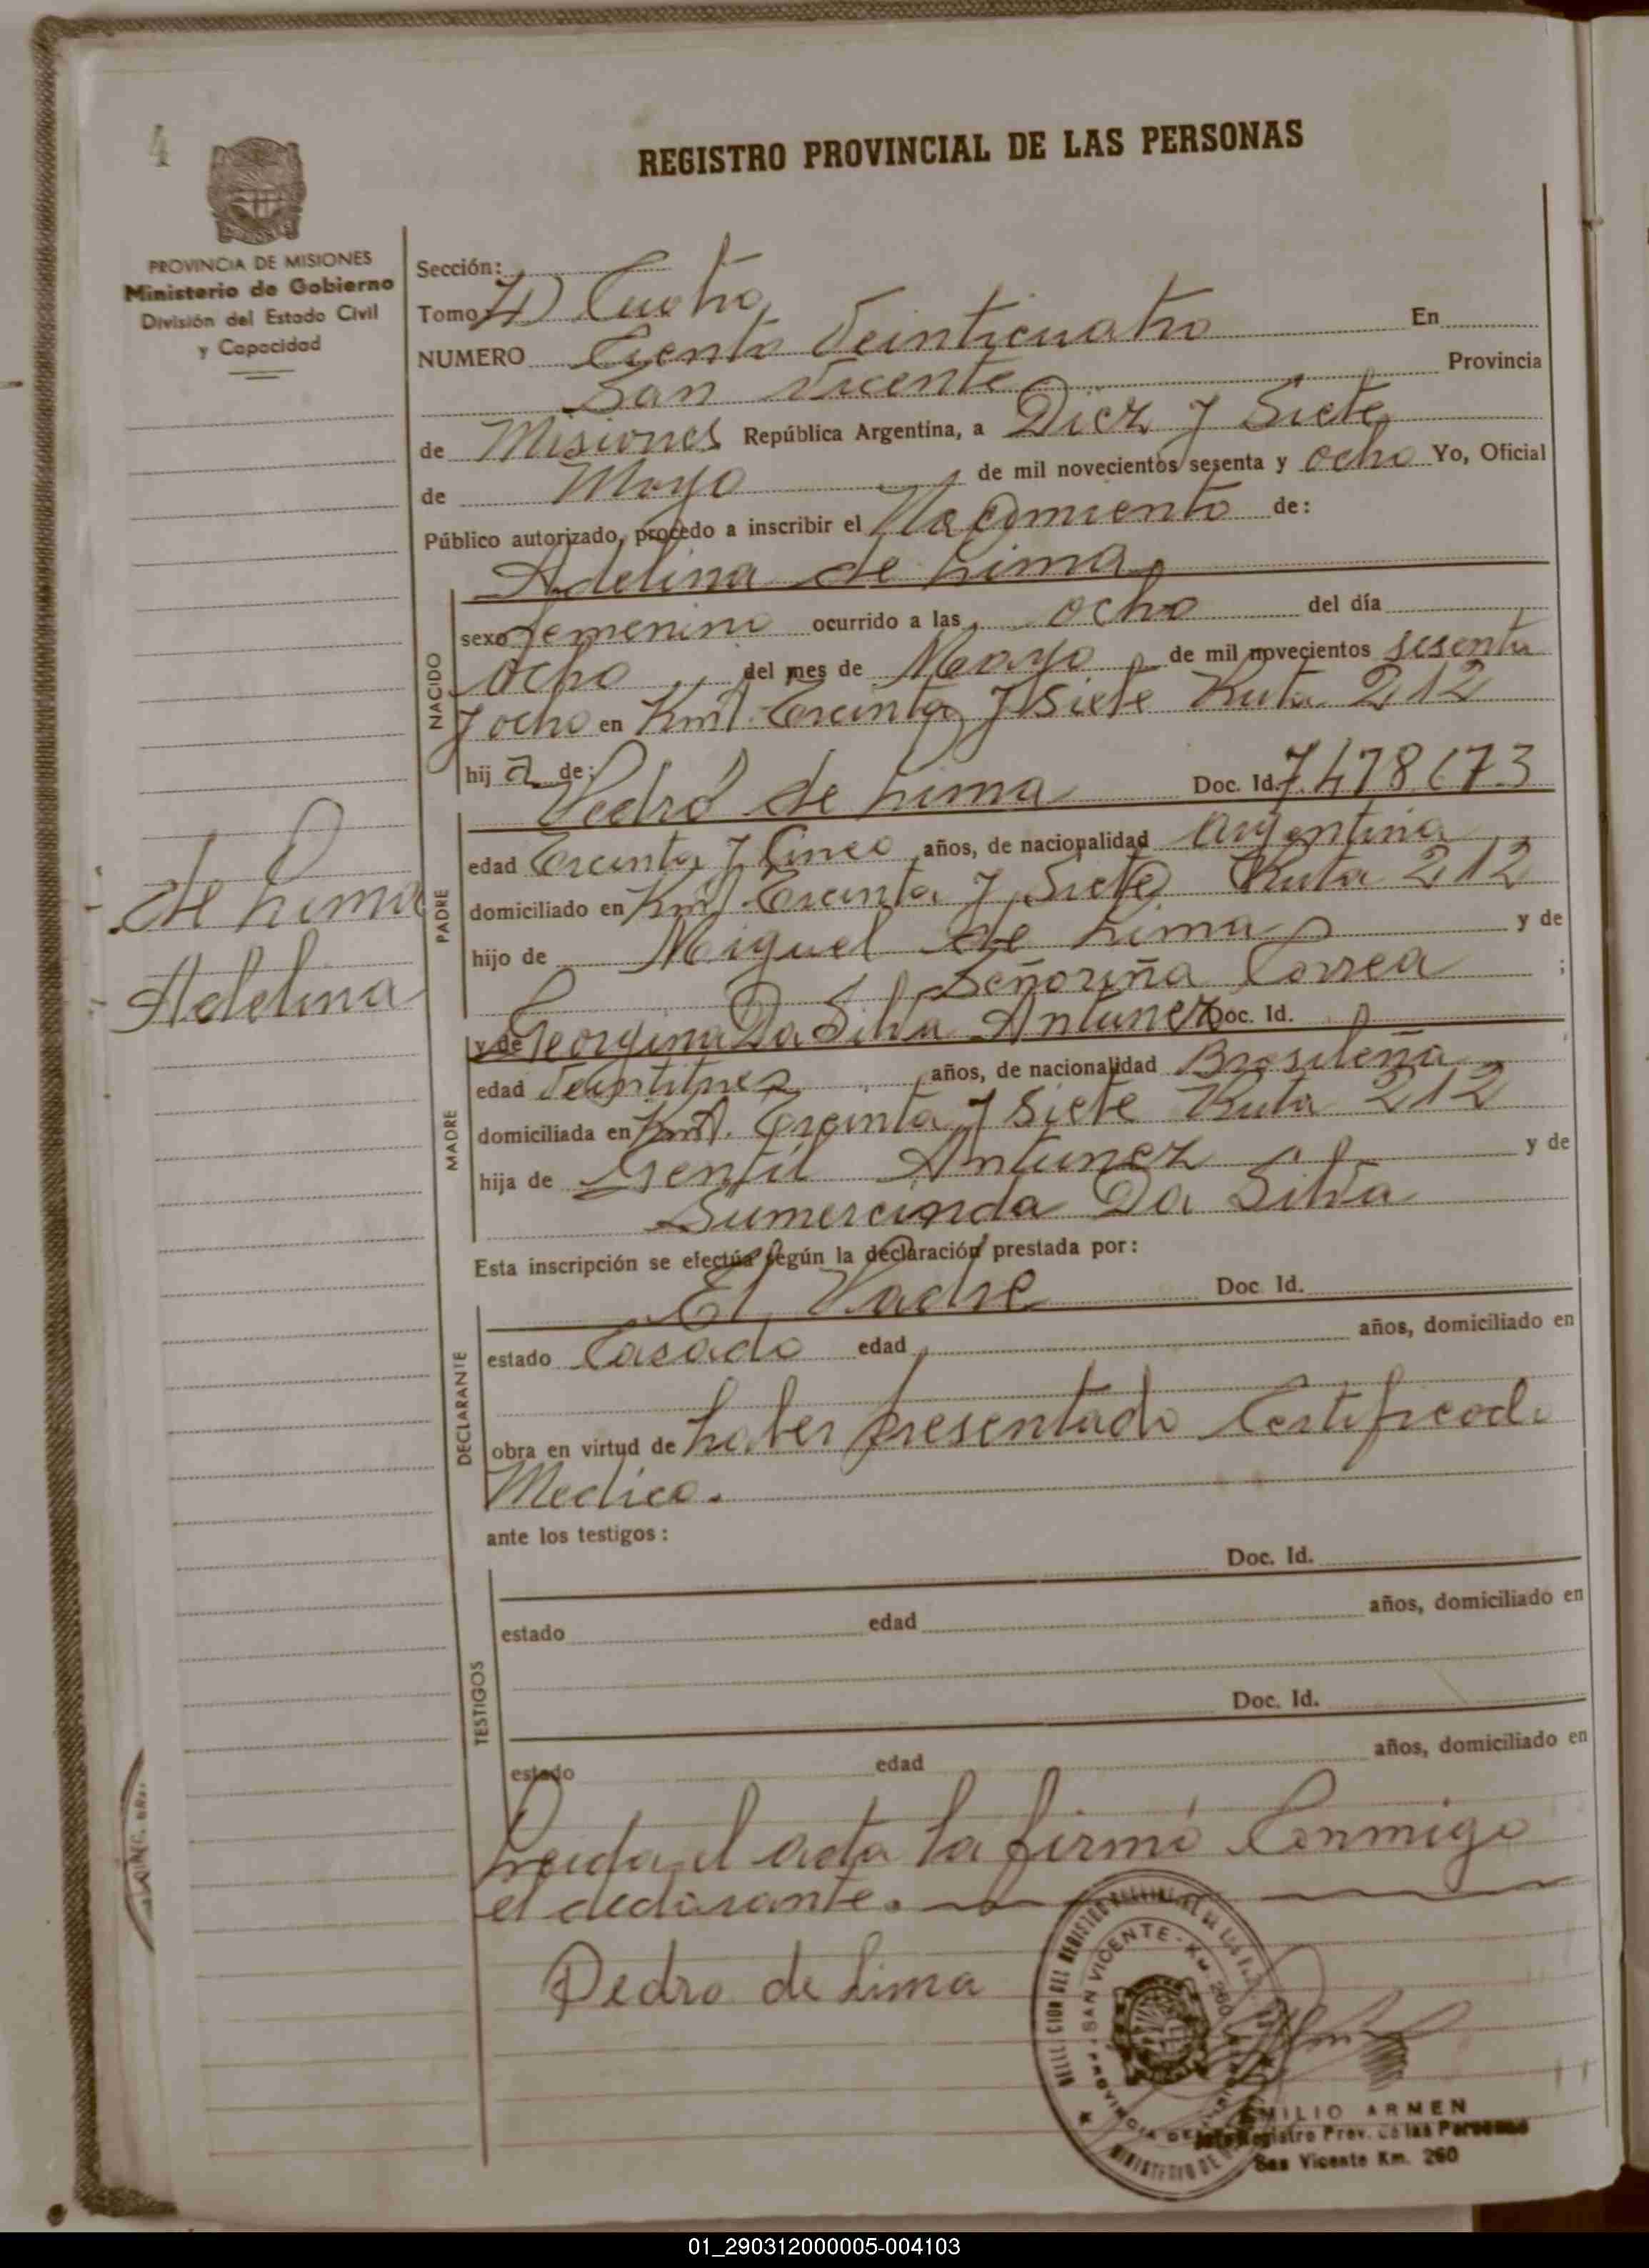 4
REGISTRO PROVINCIAL DE LAS PERSONAS
PROVINCIA DE MISIONES
Ministerio de Gobierno
División del Estado Civil
y Capacidad
Sección:
Tomo 4D Cuatro
NUMERO Ciento Veinticuatro En
San Vicente Provincia
de Misiones República Argentina, a Diez y Siete
de Mayo de mil novecientos sesenta y ocho Yo, Oficial
Público autorizado, procedo a inscribir el Nacimiento de:
Adelina de Lima
NACIDO
sexo femenino ocurrido a las ocho del día
ocho del mes de Mayo de mil novecientos sesenta
y ocho en Km. Treinta y Siete Ruta 212
hija de:
Pedro de Lima Doc. Id. 7.478.673
PADRE
edad Treinta y Cinco años, de nacionalidad Argentina
domiciliado en Km. Treinta y Siete Ruta 212
hijo de Miguel de Lima y de
Señoriña Correa ;
de Lima
Adelina
y de Georgina Da Silva Antunez Doc. Id.
MADRE
edad Veintitres años, de nacionalidad Brasileña
domiciliada en Km. Treinta y Siete Ruta 212
hija de Gentil Antunez y de
Sumercinda Da Silva
Esta inscripción se efectúa según la declaración prestada por:
El Padre Doc. Id.
DECLARANTE
estado Casado edad años, domiciliado en
obra en virtud de haber presentado Certificado
Medico.
ante los testigos:
Doc. Id.
TESTIGOS
estado edad años, domiciliado en
Doc. Id.
estado edad años, domiciliado en
Leida el acta la firmó Conmigo
el declarante.
Pedro de Lima
SAN VICENTE - Km. 260
PROVINCIA DE
MINISTERIO DE
EMILIO ARMEN
Jefe Registro Prov. de las Personas
San Vicente Km. 260
01_290312000005-004103